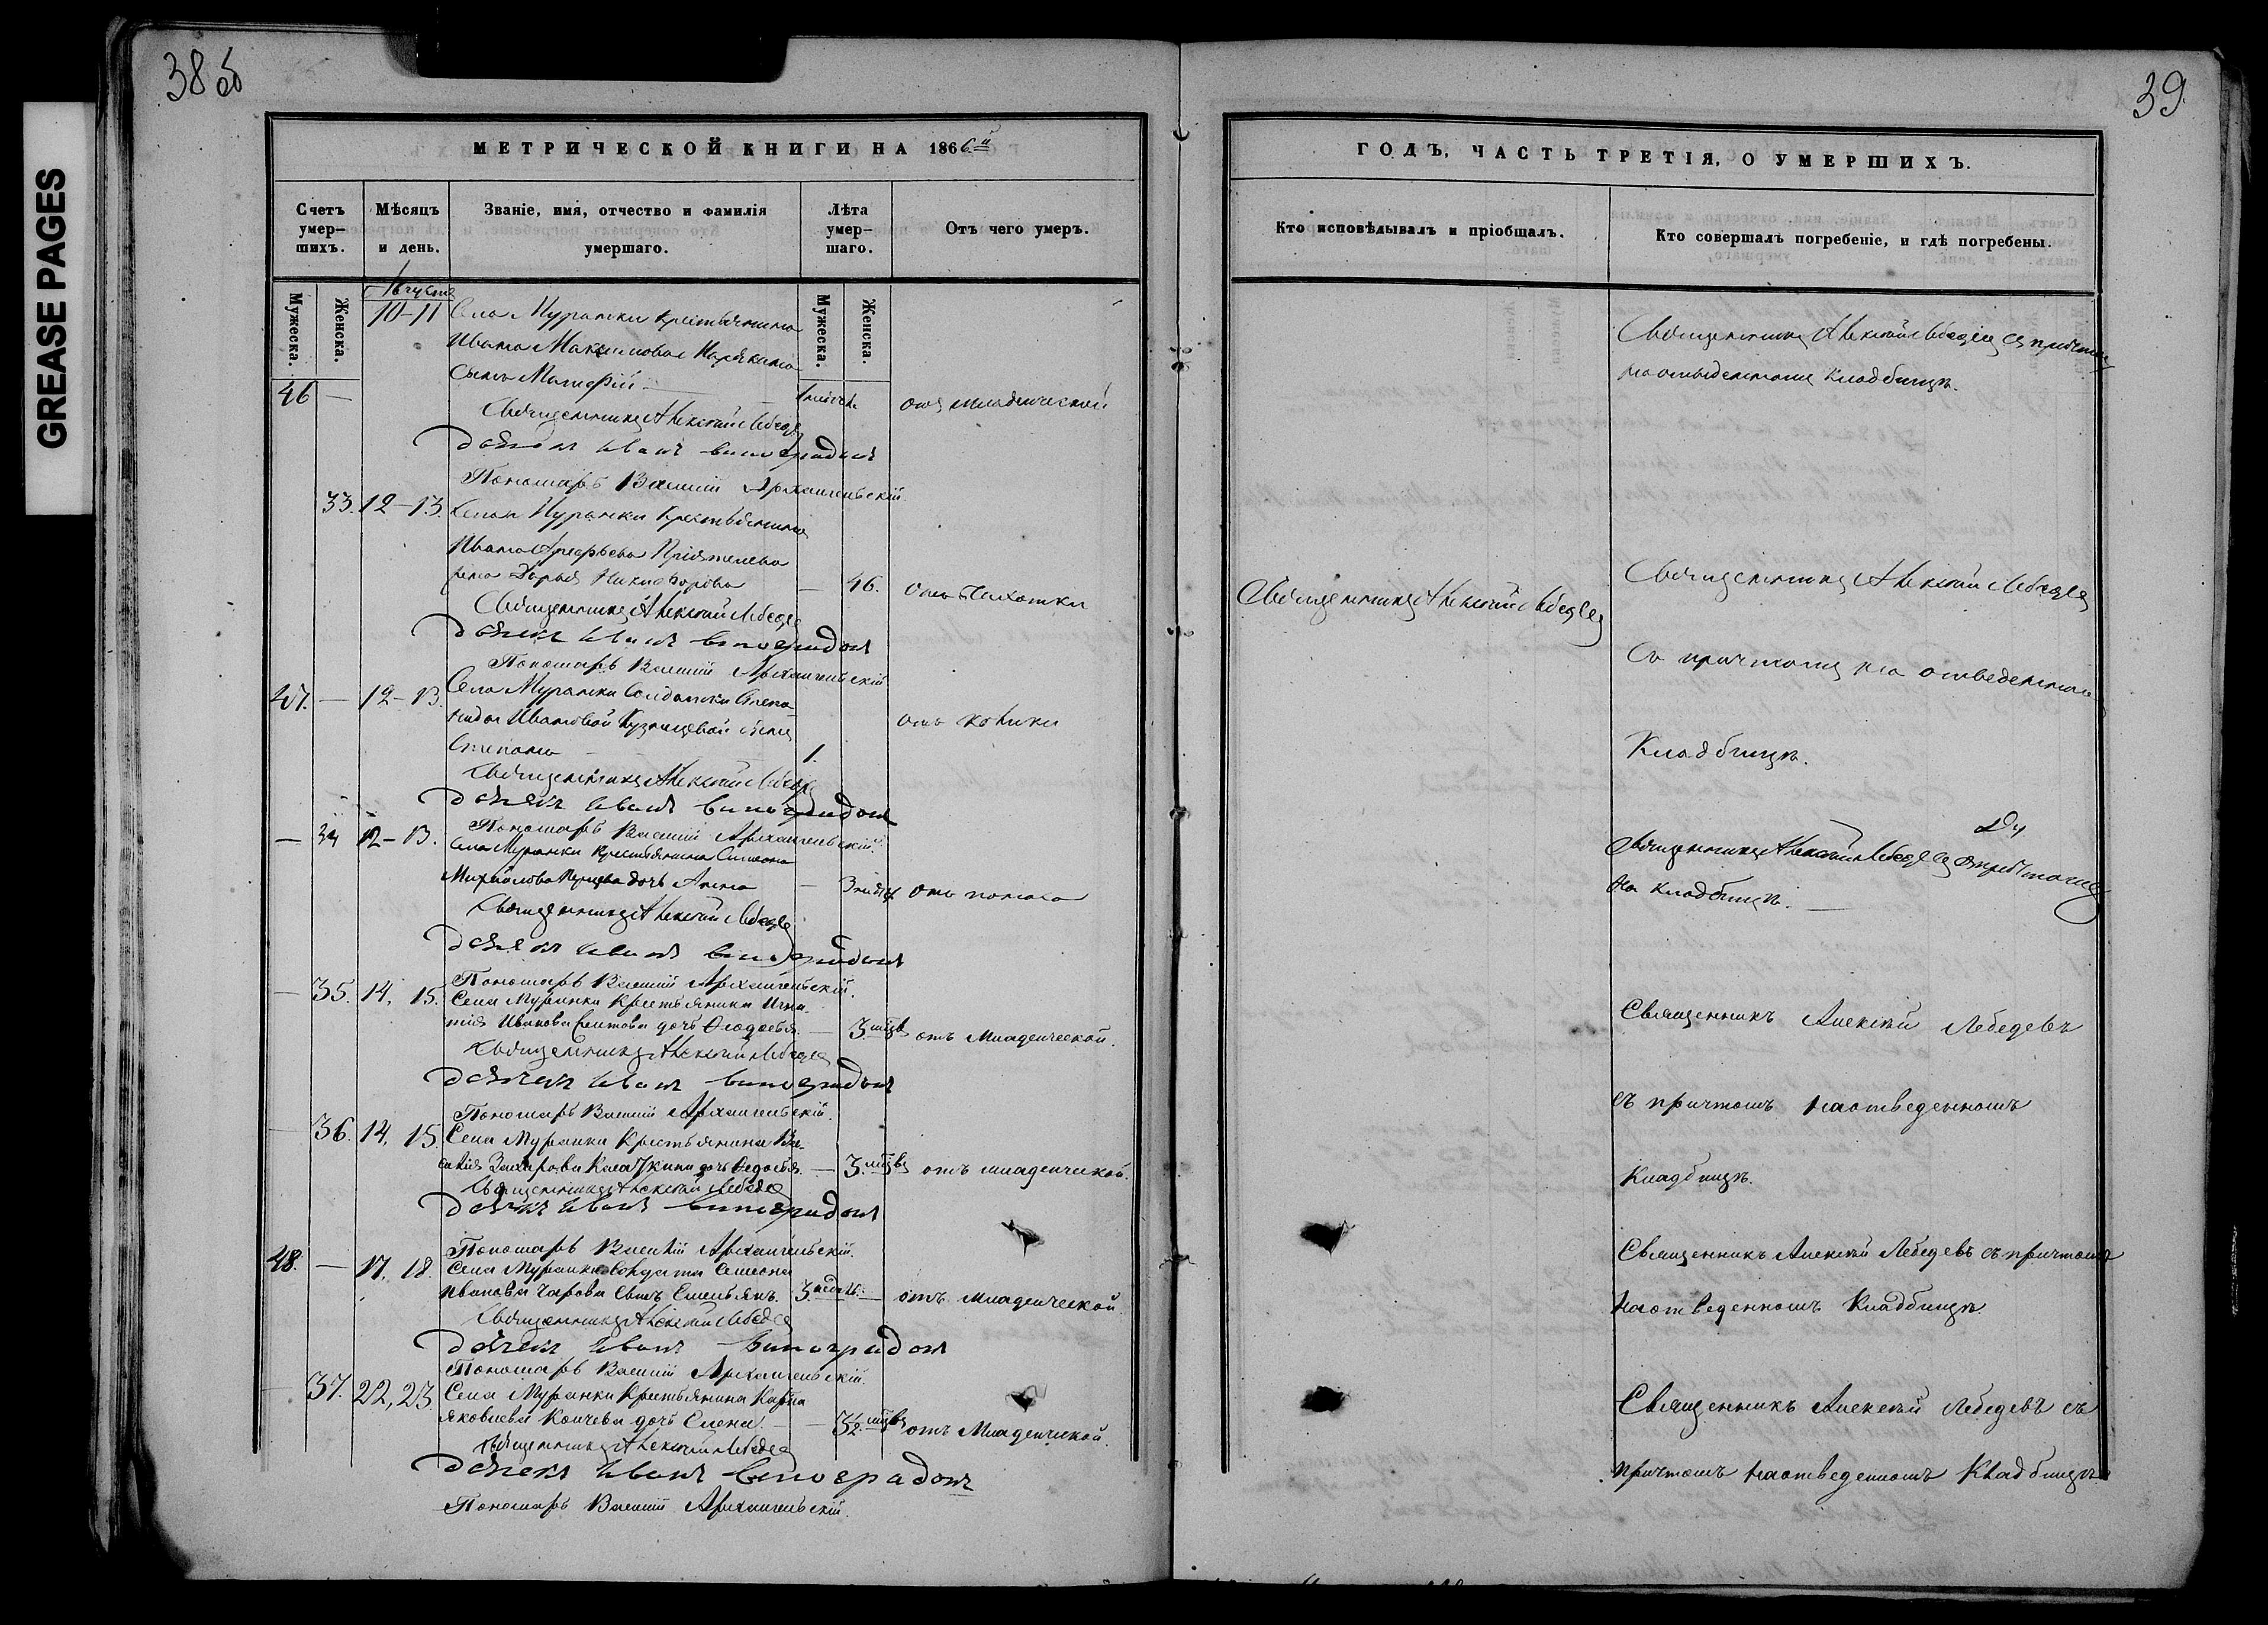 38 об
39
GREASE PAGES
МЕТРИЧЕСКОЙ КНИГИ НА 1866.й
Счетъ умер-шихъ.
Мѣсяцъ и день.
Званіе, имя, отчество и фамилія умершаго.
Лѣта умер-шаго.
Отъ чего умеръ.
Мужеска.
Женска.
Августа
Мужеска.
Женска.
46 — 10-11 Села Муранки крестьянина
Ивана Максимова
сынъ Матфій
отъ младенческой
Священникъ Алексѣй Лебедевъ
Дьячекъ Иванъ Виноградовъ
Пономарь Василій Архангельскій
33. 12-13. Села Муранки крестьянина
Ивана Пріятелева
жена Дарья Никифорова — 46. отъ чахотки
Священникъ Алексѣй Лебедевъ
Дьячекъ Иванъ Виноградовъ
Пономарь Василій Архангельскій
47. — 12-13. Села Муранки солдатки Степа-
ниды Ивановой Кузнецовой сынъ
Степанъ 1. отъ колики
Священникъ Алексѣй Лебедевъ
Дьячекъ Иванъ Виноградовъ
Пономарь Василій Архангельскій.
— 34 12-13. Села Муранки крестьянина Симеона
Михайлова дочь Анна — отъ поноса
Священникъ Алексѣй Лебедевъ
Дьячекъ Иванъ Виноградовъ
Пономарь Василій Архангельскій.
— 35. 14, 15. Села Муранки крестьянина Игна-
тія Иванова дочь Ѳеодосья. — 3. мѣсяц. отъ младенческой.
Священникъ Алексѣй Лебедевъ
Дьячекъ Иванъ Виноградовъ
Пономарь Василій Архангельскій.
36. 14, 15 Села Муранки крестьянина Ва-
силія Захарова дочь Ѳедосья. — 3. мѣсяц. отъ младенческой.
Священникъ Алексѣй Лебедевъ
Дьячекъ Иванъ Виноградовъ
Пономарь Василій Архангельскій.
48. — 17, 18. Села Муранки солдата Симеона
Иванова сынъ Емельянъ. 3. недѣли — отъ младенческой
Священникъ Алексѣй Лебедевъ
Дьячекъ Иванъ Виноградовъ
Пономарь Василій Архангельскій.
— 37. 22, 23. Села Муранки крестьянина Карпа
Яковлева дочь Елена — отъ младенческой.
Священникъ Алексѣй Лебедевъ
Дьячекъ Иванъ Виноградовъ
Пономарь Василій Архангельскій.
ГОДЪ, ЧАСТЬ ТРЕТІЯ, О УМЕРШИХЪ.
Кто исповѣдывалъ и пріобщалъ.
Кто совершалъ погребеніе, и гдѣ погребены.
Священникъ Алексѣй Лебедевъ съ причтомъ
на отведенномъ кладбищѣ.
Священникъ Алексѣй Лебедевъ
Священникъ Алексѣй Лебедевъ
съ причтомъ на отведенномъ
кладбищѣ.
Священникъ Алексѣй Лебедевъ съ причтомъ
на кладбищѣ.
Священникъ Алексѣй Лебедевъ
съ причтомъ на отведенномъ
кладбищѣ.
Священникъ Алексѣй Лебедевъ съ причтомъ
на отведенномъ кладбищѣ
Священникъ Алексѣй Лебедевъ съ
причтомъ на отведенномъ кладбищѣ